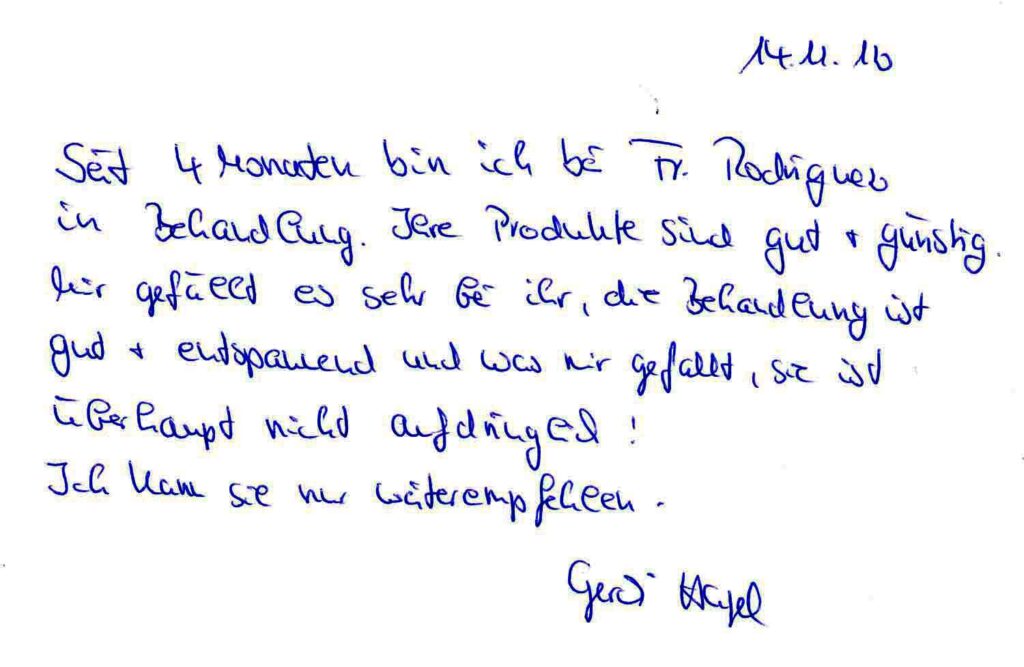 14.11.16
Seit 4 Monaten bin ich bei Fr. Rodriguez
in Behandlung. Ihre Produkte sind gut + günstig.
Mir gefällt es sehr bei ihr, die Behandlung ist
gut + entspannend und was mir gefällt, sie ist
überhaupt nicht
Ich kann sie nur weiterempfehlen.
Gerdi